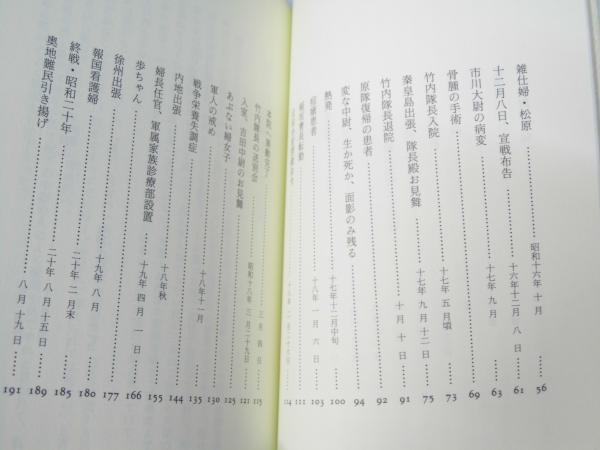 雑仕婦・松原 昭和十六年 十月 56
十二月八日、宣戦布告 十六年十二月 八日 61
市川大尉の病変 十七年 九月 63
骨腫の手術 69
竹内隊長入院 十七年 五月頃 73
秦皇島出張、隊長殿お見舞 十七年 九月十二日 75
竹内隊長退院 十月 十日 91
原隊復帰の患者 92
変な中尉、生か死か、面影のみ残る 94
熱発 十七年十二月中旬 100
患者 十八年 一月 六日 103
111
114
三月 四日 115
竹内隊長の送別会 昭和十八年 三月二十九日 121
入室、吉田中尉のお見舞 125
あぶない婦女子 130
軍人の戒め 十八年十一月 135
戦争栄養失調症 144
内地出張 十八年秋 155
婦長任官、軍属家族診療部設置 十九年 四月 一日 166
歩ちゃん 177
徐州出張 十九年 八月 180
報国看護婦 二十年 二月末 185
終戦・昭和二十年 二十年 八月 十五日 189
奥地難民引き揚げ 八月 十九日 191